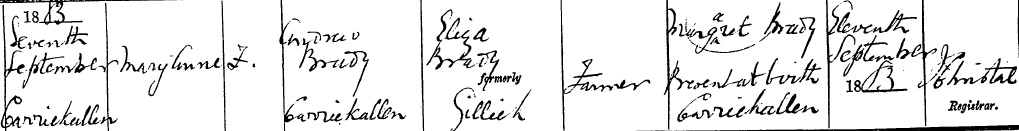 1883
Seventh
September
Carrickallen
Mary Anne
F.
Andrew
Brady
Carrickallen
Eliza
Brady
formerly
Gillick
Farmer
Margaret Brady
Present at birth
Carrickallen
Eleventh
September
1883
Registrar.